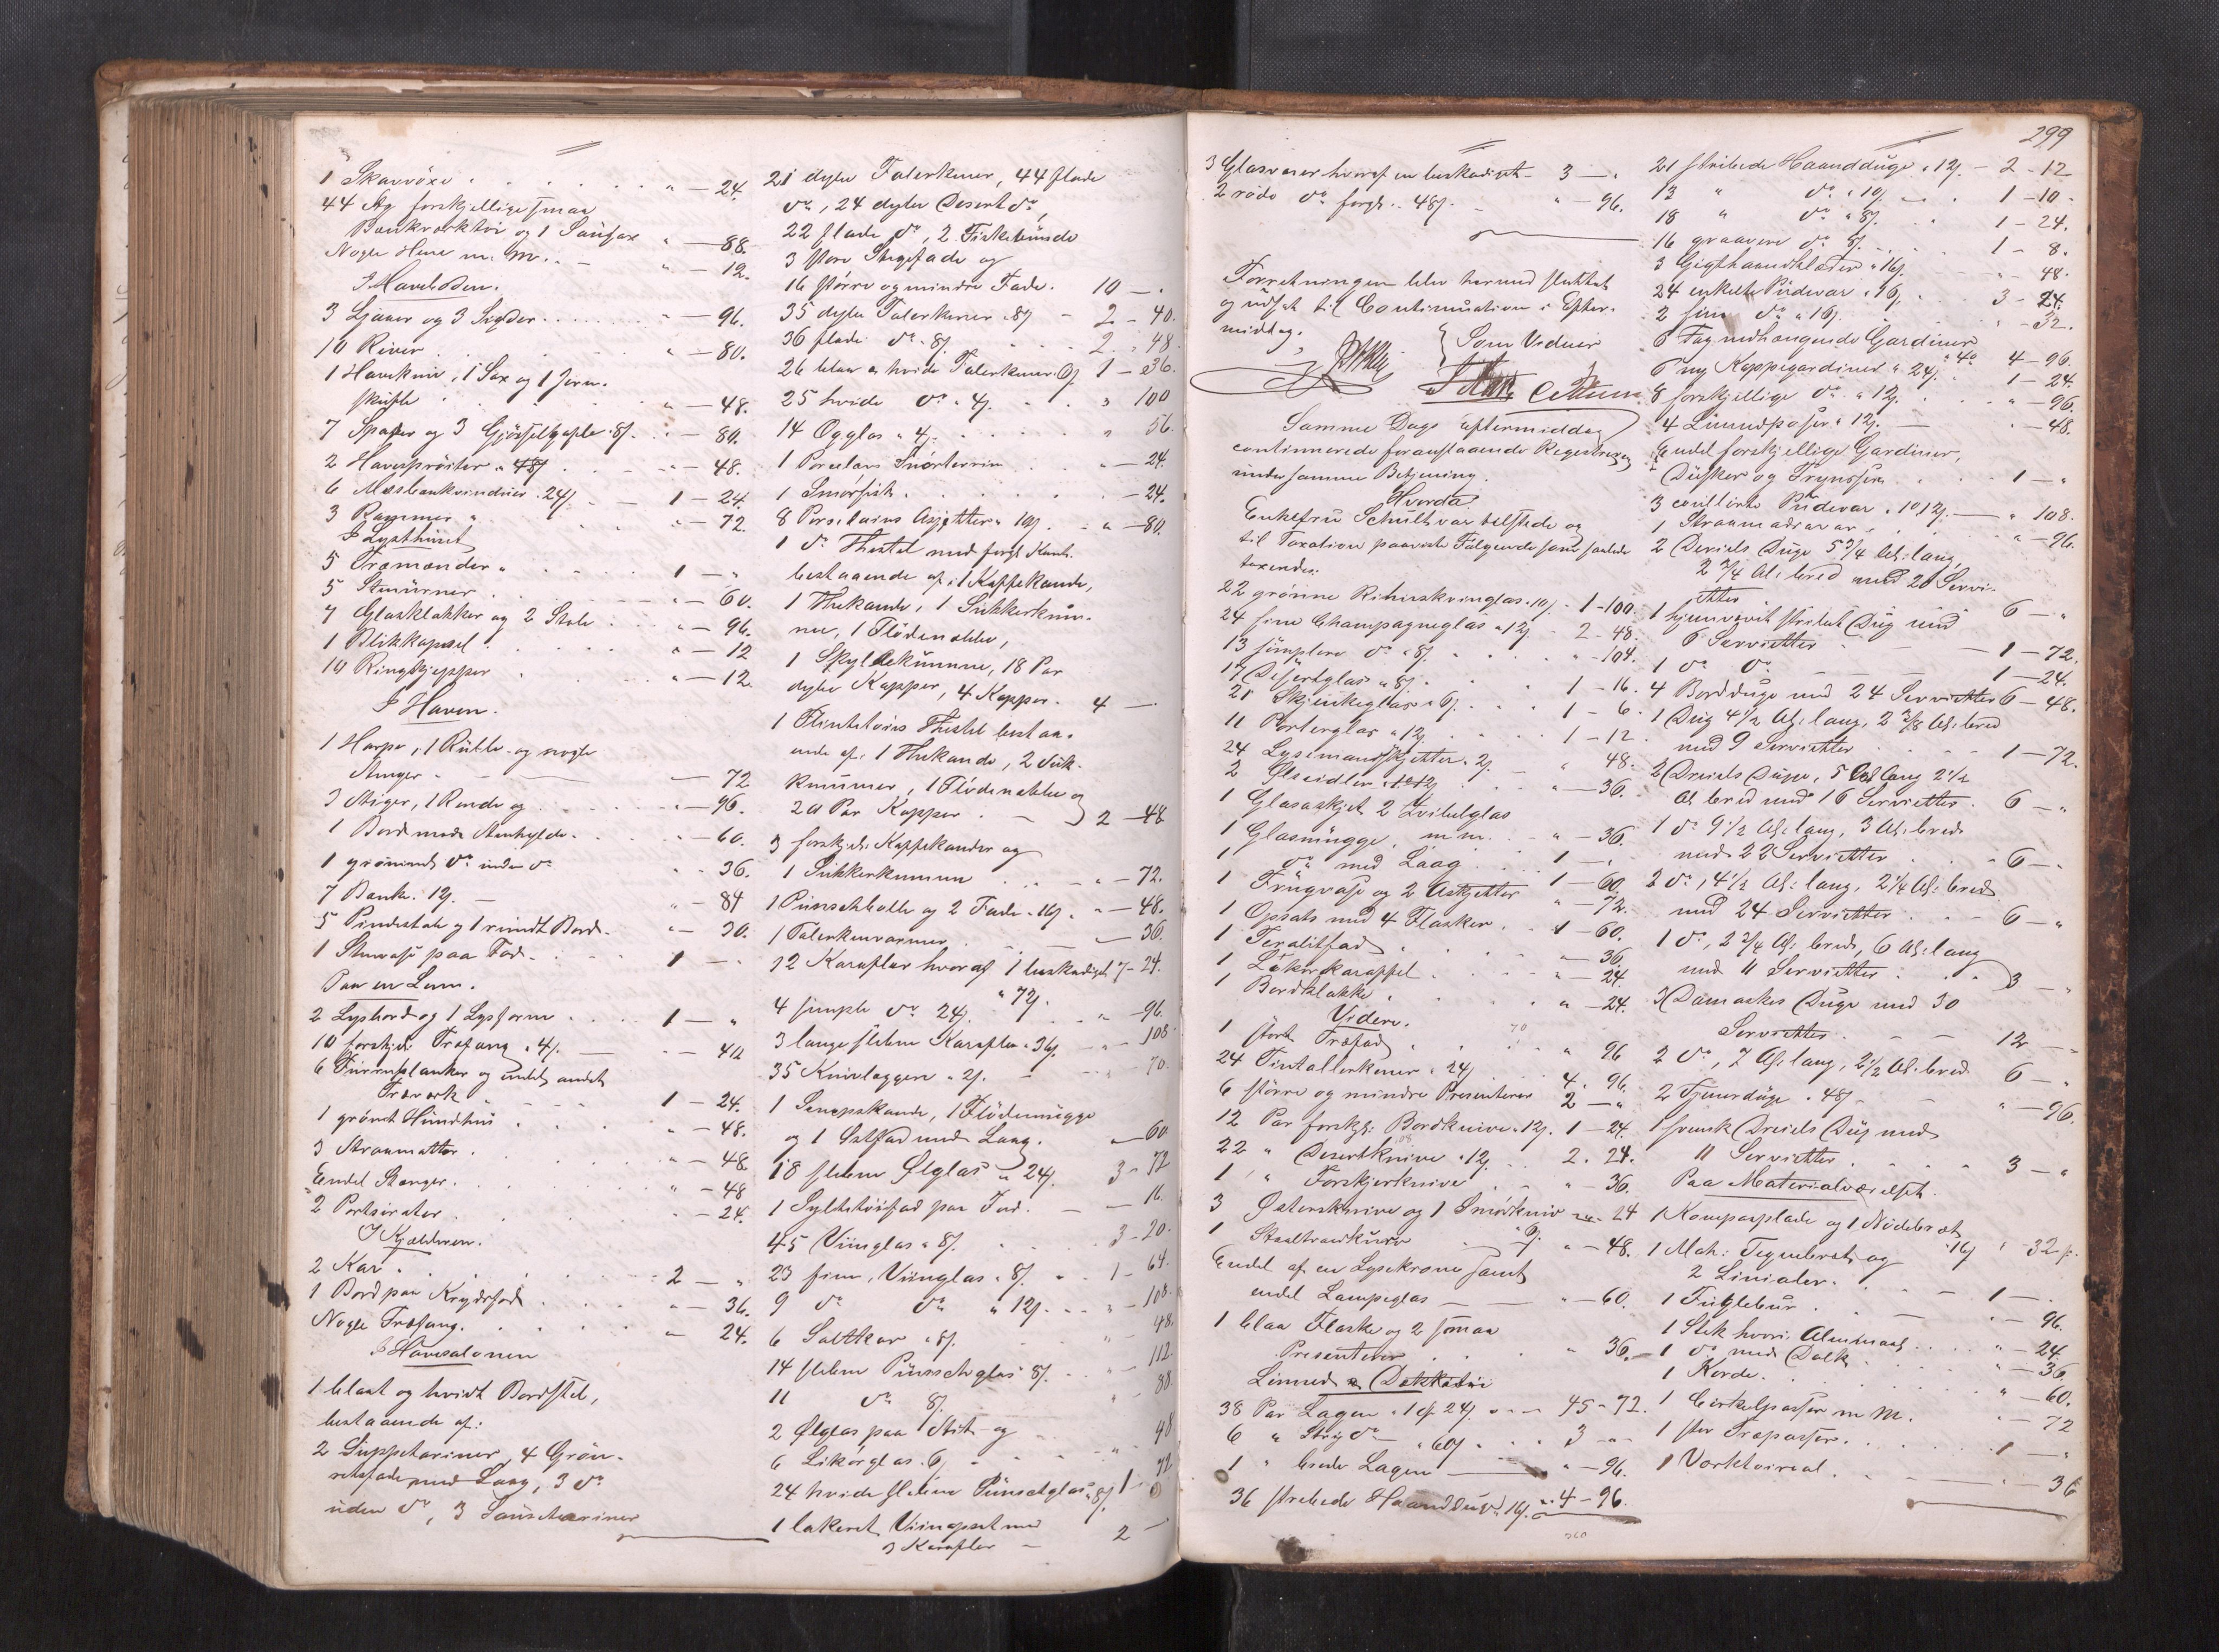 1 Skarvöxe " — 24.
44 Stg forskjellige smaa
Bænkverktöi og 1 Sausax " — 88.
Nogle Hene m. m. " — 12.
I Haveboden.
3 Ljaaer og 3 Sigder " — 96.
10 River " — 80.
1 Havekniv, 1 Sax og 1 Jern-
skuffe " — 48.
7 Spader og 3 Gjödselgafle 8/ " — 80.
2 Havespröiter " 48/ " — 48.
6 Mistbænkvinduer 24/ 1 — 24.
3 Rammer " " — 72
I Lysthuset
5 Træmænder " 1 — "
5 Stenurner " — 60.
7 Glasklokker og 2 Stole " — 96.
1 Blikkapsel " — 12
10 Ringkjepper " — 12.
I Haven.
1 Harpe, 1 Rulle og nogle
Stænger " — 72
3 Stiger, 1 Rende og " — 96.
1 Bord med Stenhylde " — 60.
1 grönmalt do uden do " " 36.
7 Bænke 12/ " — 84
5 Pindestole og 1 rundt Bord " — 30.
1 Stenvase paa Fod 1 — "
Paa en Lem.
2 Lysbord og 1 Lysform 1 — "
10 forskjell. Træfang " 4/ " — 40
6 Furruplanker og endel andet
Træverk 1 — 24.
1 grönt Hundehus " — 48.
3 Straamatter " — 48.
Endel Stænger " — 48
2 Portsirater " — 24.
I Kjælderen.
2 Kar 2 — "
1 Bord paa Krydsfod " — 36.
Nogle Træfang " — 24.
I Havesalonen
1 blaat og hvidt Bordstel,
bestaaende af:
2 Suppeteriner, 4 Grön-
retsfade med Laag, 3 do
uden do, 3 Sauseteriner
21 dybe Talerkener, 44 flade
do, 24 dybe Desert do,
22 flade do, 2 Fiskebunde
3 store Stegefade og
16 större og mindre Fade. 10 — "
35 dybe Talerkener 8/ 2 — 40.
36 flade do 8/ 2 " 48.
26 blaa og hvide Talerkener 6/ 1 — 36.
25 hvide do " 4/ " 100
14 Ægglas " 4/ " 56.
1 Porcelæns Smörterrin " — 24.
1 Smörfisk " — 24.
8 Porselains Asjetter " 10/ " — 80.
1 do Thestel med forgt. Kant.
bestaaende af: 1 Kaffekande,
1 Thekande, 1 Sukkerkum-
me, 1 Flödemukke,
1 Skyllekumme, 18 Par
dybe Kopper, 4 Kopper. 4 —
1 Flintetöis Thestel bestaa-
ende af: 1 Thekande, 2 Suk.
kummer, 1 Flödemukke og
20 Par Kopper 2 — 48
3 forskjell. Kaffekander og
1 Sukkerkumme " — 72.
1 Punschbolle og 2 Fade 16/ " — 48.
1 Talerkenvarmer " — 36.
12 Karafler hvoraf 1 beskadiget 7 — 24.
" 72/
4 simple do 24/ " — 96.
3 lange slebne Karafler 36/ " — 108
35 Knivlæggere " 2/ " 70.
1 Senepskande, 1 Flödemugge
og 1 Ostfad med Laag. — 60
18 slebne Ølglas " 24/ 3 — 72
1 Syltetöisfad paa Fod — 16.
45 Viinglas " 8/ 3 — 20.
23 fine Viinglas " 8/ 1 — 64.
9 do do " 12/ " — 108.
6 Saltkar " 8/ " 48.
14 slebne Punschglas 8/ " — 112.
11 do 8/ " 88.
2 Ølglas paa Stet og " 48
6 Likörglas 6/ " 72
24 hvide slebne Punschglas 8/ 1 "
1 lakeret Viinopsats med
3 Karafler 2 —
299
3 Glasvaser hvoraf en beskadiget 3 — "
2 röde do forgt. 48/ " — 96.
Forretningen blev hermed sluttet
og udsat til Continuation i Efter-
middag.
Som Vidner
Samme Dags Eftermiddag
continuerede foranstaaende Registrering
under samme Betjening.
Hvorda
Enkefru Schult var tilstede og
til Taxation paaviste Fölgende som saaledes
taxeredes.
22 grönne Rhinskvinglas 10/ 1 — 100.
24 fine Champagneglas " 12/ 2 — 48.
13 simplere do " 8/ " 104.
17 Desertglas " 8/ 1 — 16.
21 Skjenkeglas " 6/ 1 — 6.
11 Porterglas " 12/ 1 — 12
24 Lysemandskjetter 2/ " 48.
2 Ølseidler " 12/ " — 36.
1 Glasaskjet 2 Zvibelglas
1 Glasmugge m. m. " — 36.
1 do med Laag 1 — "
1 Frugvase og 2 Askjetter 1 — 60.
1 " — 72.
1 Opsats med 4 Flasker 1 — 60.
1 Teralitfad " 36.
1 Likörkaraffel " 24.
1 Bordklokke " — 24.
Videre.
1 stort Træfad " 96
24 Tintallerkener " 24/ 4 " 96.
6 större og mindre Presenterer 2 — "
12 Par forskjel. Bordknive " 12/ 1 — 24.
22 " Desertknive " 12/ 2 " 24.
1 " Forskjerknive " — 36.
3 Østersknive og 1 Smörkniv " 24
1 Staaltraadkurv " 6/ " — 48.
Endel af en Lysekrone samt
endel Lampeglas " — 60.
1 blaa Flaske og 2 smaa
Presenterer " 36.
Linned & Dækketöi
38 Par Lagen " 1 Sp 24/ 45 " 72.
6 " Strie do " 60/ 3 — "
1 " brede Lagen " — 96.
36 stribede Haandduge 16/ " 4 — 96.
21 stribede Haandduge " 12/ 2 — 12
13 " do " 10/ 1 — 10
18 " do " 8/ 1 — 24.
16 graavere do 8/ 1 — 8.
3 Gigthaandklæder " 16/ " 48.
24 enkelte Pudevar " 16/ 3 — 24.
2 fine do " 16/ " — 32.
6 Fag nedhængende Gardiner
" 4 o 4 — 96.
6 ny Kappegardiner " 24/ 1 — 24.
8 forskjellige do " 12/ " — 96.
4 Linnedposer " 12/ " — 48.
Endel forskjellige Gardiner,
Dusker og Frynsser 1 — "
3 coullörte Pudevar " 10, 12/ " 108.
1 Straamadras var " — 96.
2 Dreiels Duge 5 3/4 Al: lang
2 3/4 Al: bred med 20 Servi-
etter 6 — "
1 hjemvævet stribet Dug med
6 Servietter 1 — 72.
1 do do 1 — 24.
4 Bordduge med 24 Servietter 6 — 48.
1 Dug 4 1/2 Al: lang, 2 3/8 Al: bred
med 9 Servietter 1 — 72.
2 Dreiels Duge, 5 Al lang 2 1/2
Al. bred med 16 Servietter 6 — "
1 do 9 1/2 Al: lang, 3 Al: bred
med 22 Servietter 6 — "
2 do, 4 1/2 Al: lang, 2 1/4 Al: bred
med 24 Servietter 6 — "
1 do, 2 3/4 Al: bred, 6 Al: lang
med 11 Servietter 3 — "
3 Damaskes Duge med 30
Servietter 12 — "
2 do, 7 Al: lang, 2 1/2 Al: bred 6 — "
2 Tjenerduge " 48/ " — 96.
1 svensk Dreiels Dug med
11 Servietter 3 — "
Paa Materialværelset.
1 Komposplade og 1 Nodebræt
" 16/ " 32 s.
1 Mah: Tegnebræt og
2 Linialer. 1 — "
1 Fuglebur " — 96.
1 Stok hvori Alenmaal " — 24
1 do med Dolk " — 36.
1 Korde " — 60.
1 Cirkelpasser m M. " 72
1 stor Træpasser 1 — "
1 Værktöireol " 36